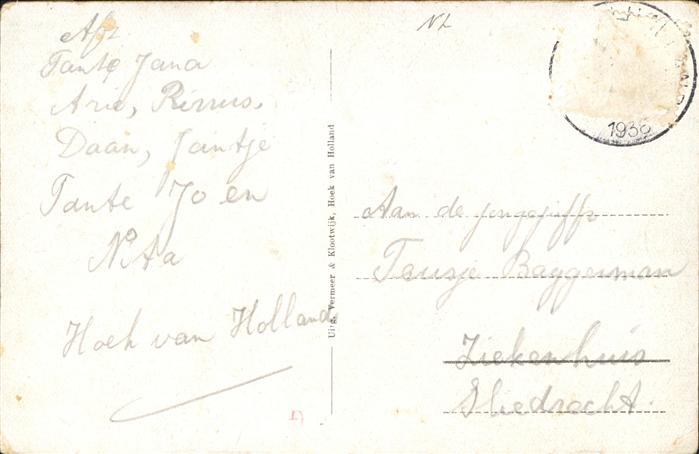 Afz.
Tante Jana
Arie, Rinus,
Daan, Jantje
Tante Jo en
Nita
Hoek van Holland
Uitg. Vermeer & Klootwijk, Hoek van Holland
NL
1936
Aan de jongejuffr
Teusje Baggerman
Ziekenhuis
Sliedrecht.